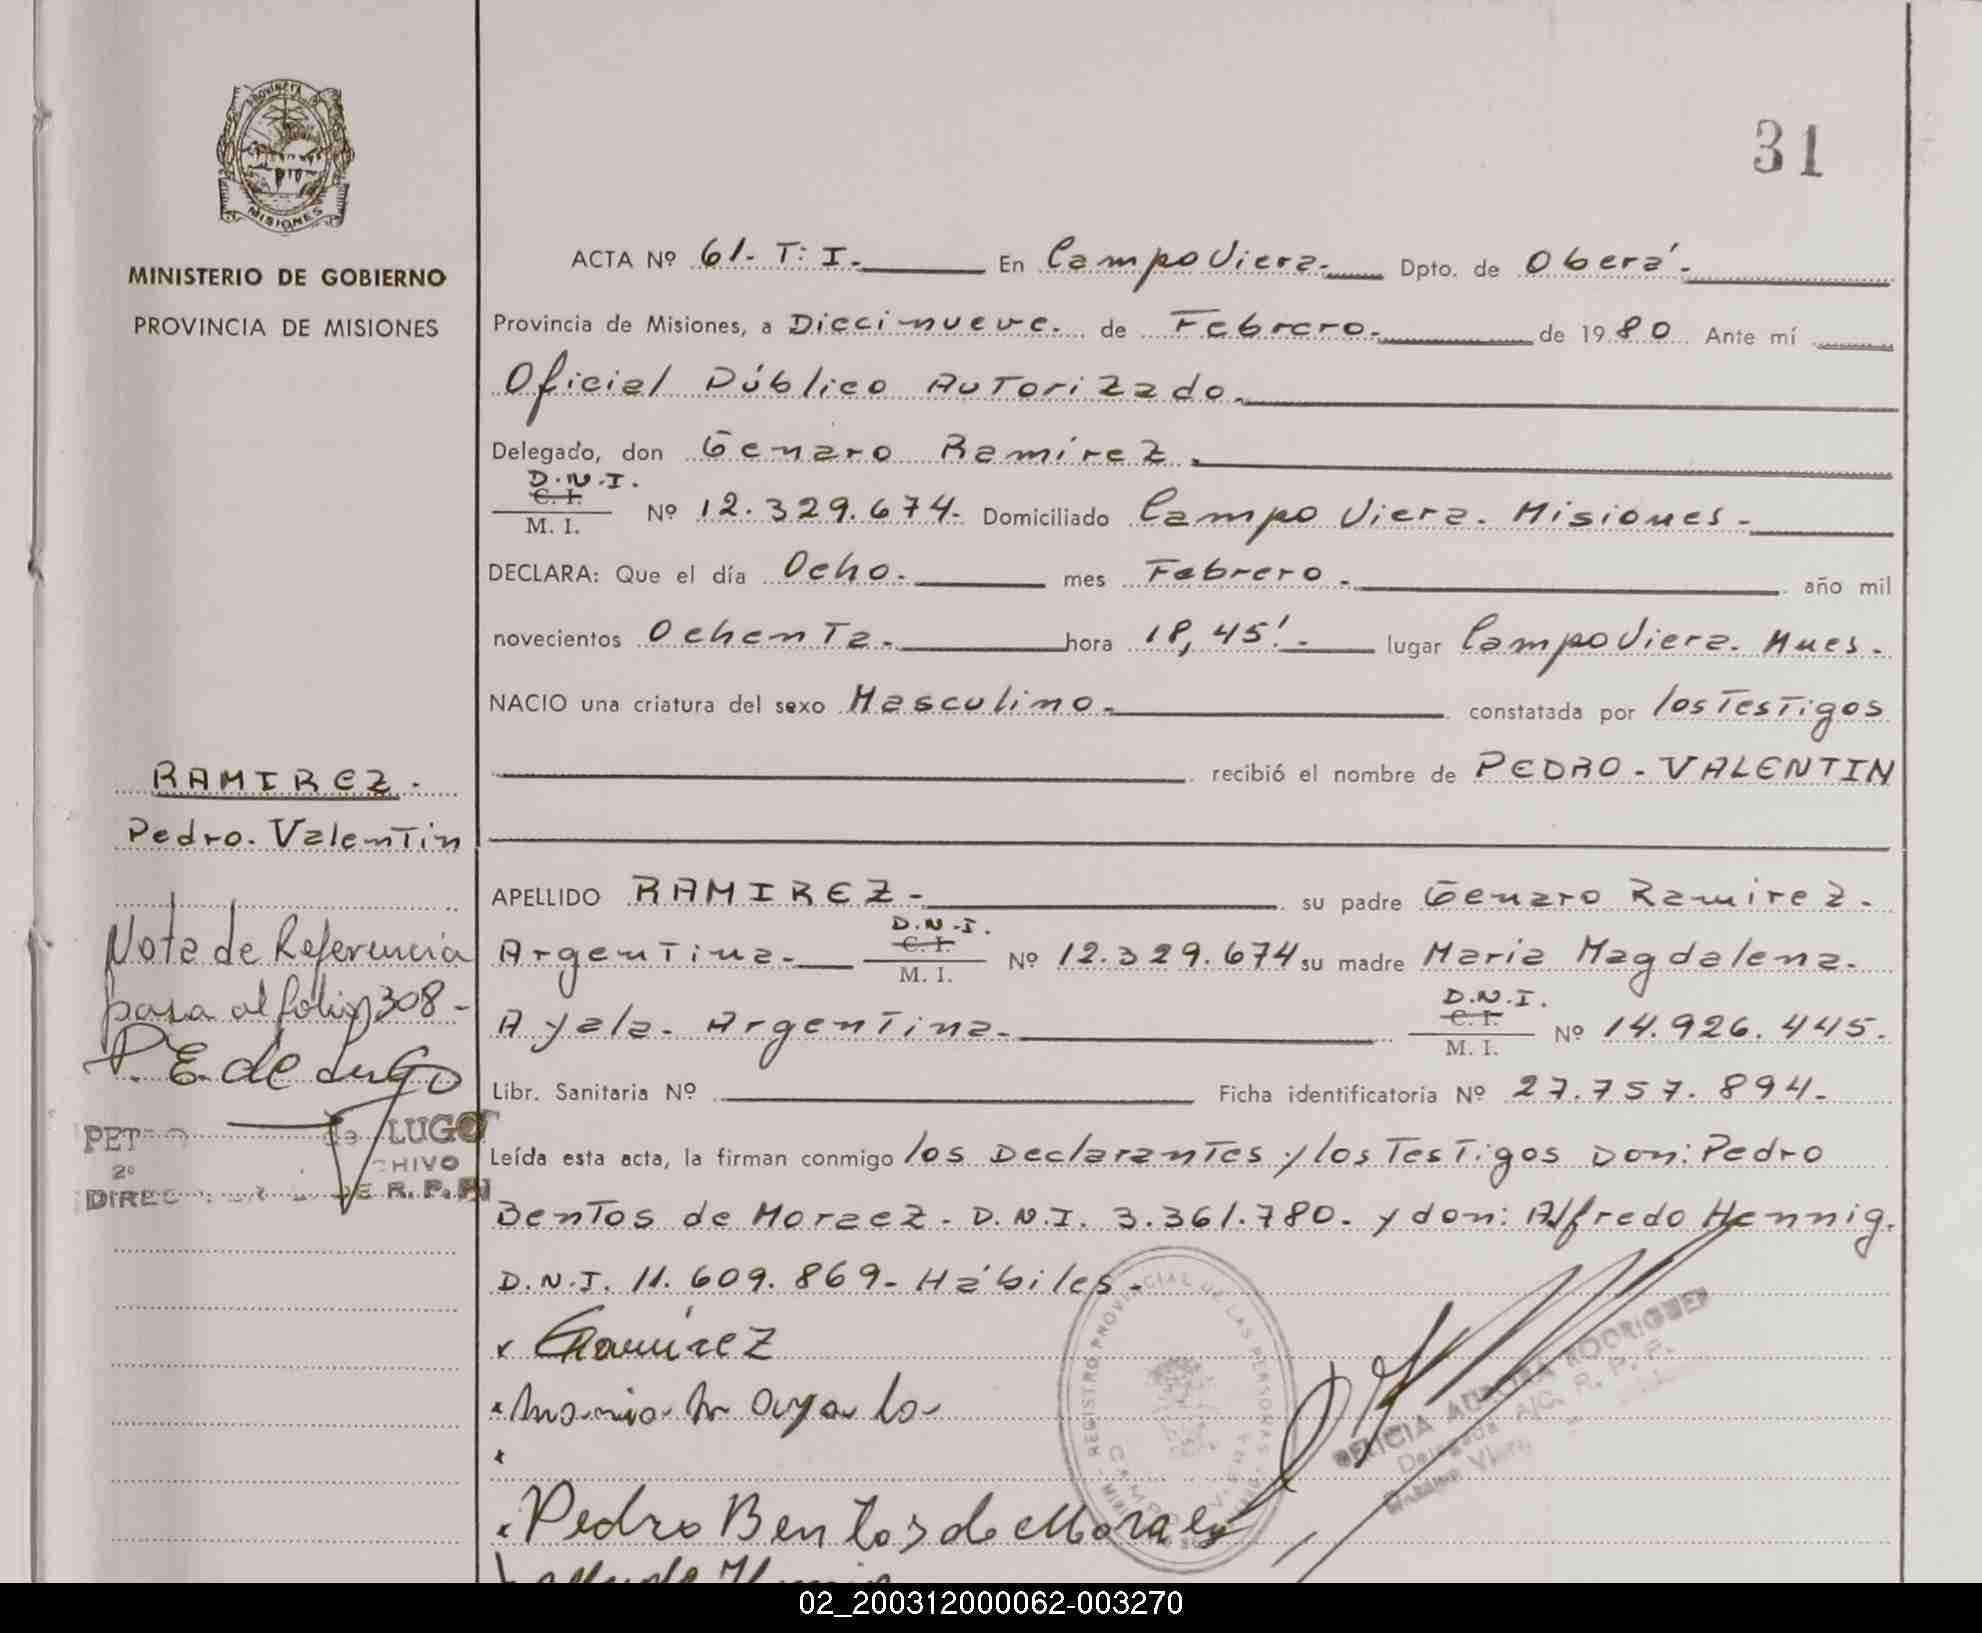 31
PROVINCIA
MISIONES
MINISTERIO DE GOBIERNO
PROVINCIA DE MISIONES
ACTA Nº 61. T: I. En Campo Viera. Dpto. de Oberá.
Provincia de Misiones, a Diecinueve. de Febrero. de 1980 Ante mí
Oficial Público Autorizado.
Delegado, don Genaro Ramírez.
D.N.I.
C. I.
M. I. Nº 12.329.674. Domiciliado Campo Viera. Misiones.
DECLARA: Que el día Ocho. mes Febrero. año mil
novecientos Ochenta. hora 18,45'. lugar Campo Viera. Mnes.
NACIO una criatura del sexo Masculino. constatada por los Testigos
recibió el nombre de PEDRO - VALENTIN
RAMIREZ.
Pedro. Valentin
APELLIDO RAMIREZ. su padre Genaro Ramirez.
Argentina. D.N.I. C. I. M. I. Nº 12.329.674 su madre Maria Magdalena.
Ayala. Argentina. D.N.I. C. I. M. I. Nº 14.926.445.
Libr. Sanitaria Nº Ficha identificatoria Nº 27.757.894.
Leída esta acta, la firman conmigo los Declarantes y los Testigos Don: Pedro
Bentos de Moraez. D.N.I. 3.361.780. y don: Alfredo Hennig.
D.N.I. 11.609.869. Hábiles.
Nota de Referencia
pasa al folio 308-
P. E. de Lugo
de LUGO
2º
R. P. P.
Ramirez
M Ayala
Pedro Bentos de Moraes
REGISTRO PROVINCIAL DE LAS PERSONAS
CAMPO VIERA
RODRIGUEZ
Delegada A/C. R. P. P.
Campo Viera
02_200312000062-003270